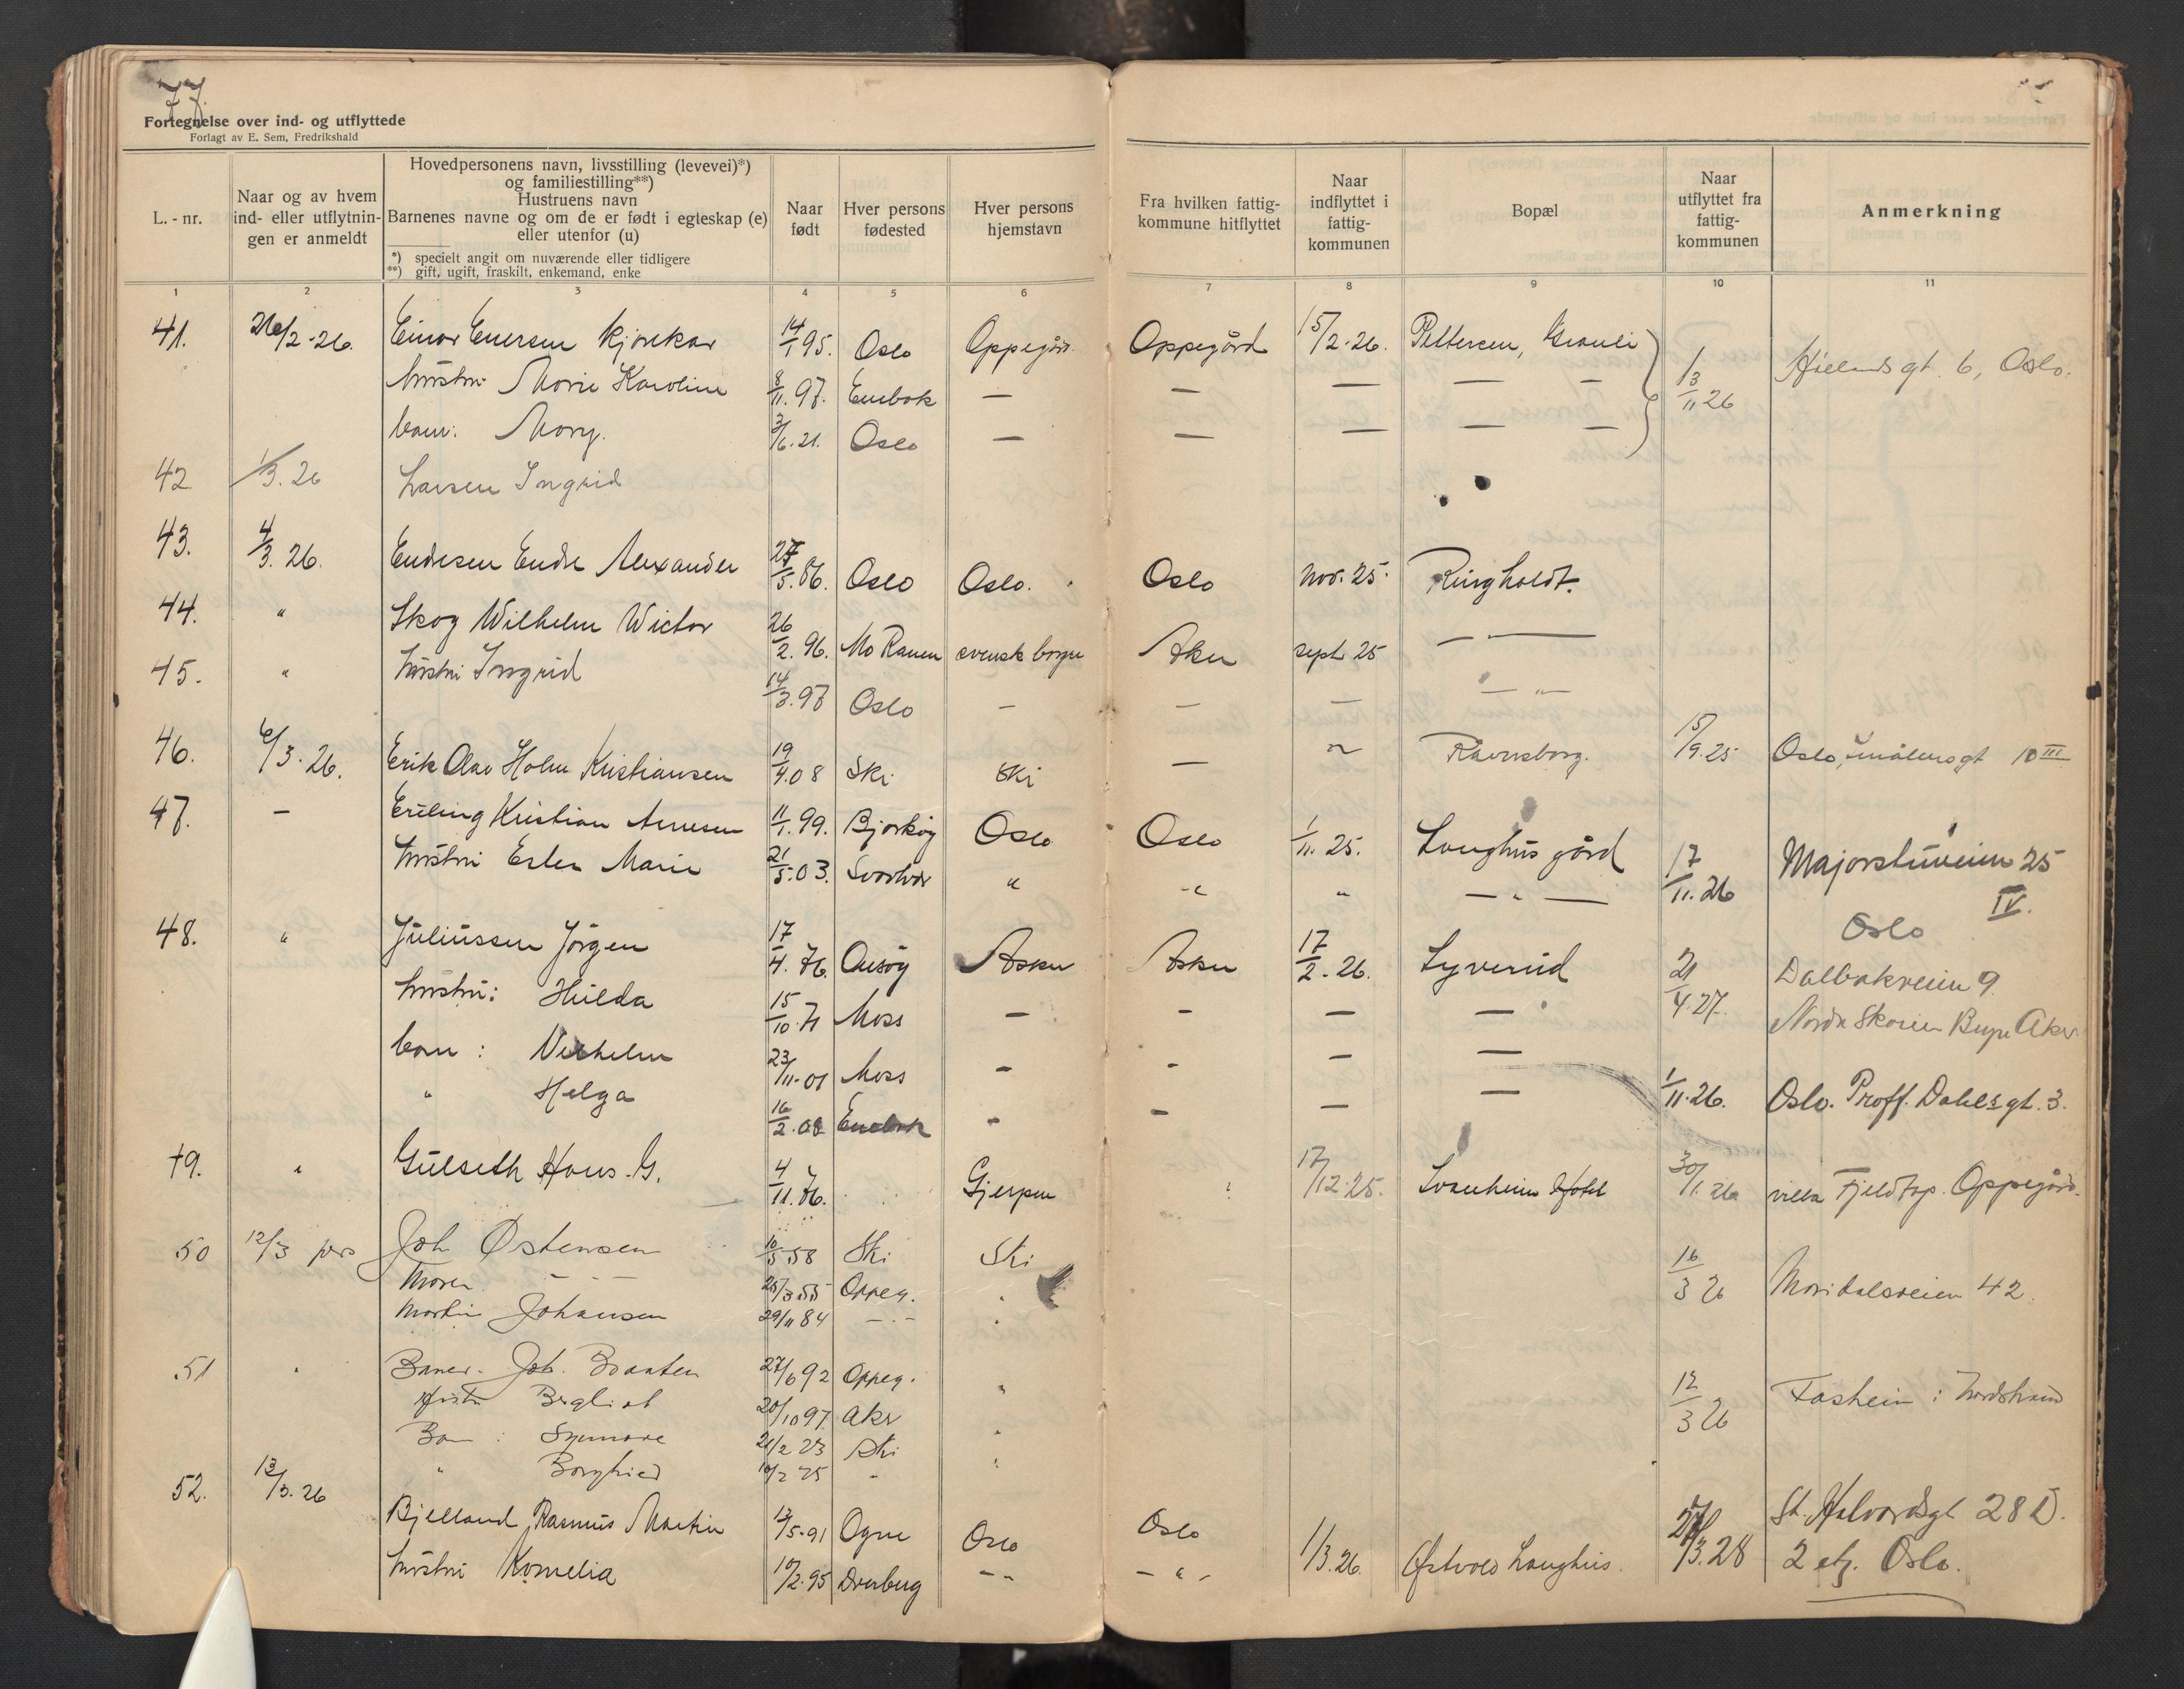 77
Fortegnelse over ind- og utflyttede
Forlagt av E. Sem, Fredrikshald
L. - nr.
Naar og av hvem
ind- eller utflytnin-
gen er anmeldt
Hovedpersonens navn, livsstilling (levevei)*)
og familiestilling**)
Hustruens navn
Barnenes navne og om de er født i egteskap (e)
eller utenfor (u)
*) specielt angit om nuværende eller tidligere
**) gift, ugift, fraskilt, enkemand, enke
Naar
født
Hver persons
fødested
Hver persons
hjemstavn
Fra hvilken fattig-
kommune hitflyttet
Naar
indflyttet i
fattig-
kommunen
Bopæl
Naar
utflyttet fra
fattig-
kommunen
Anmerkning
1 2 3 4 5 6 7 8 9 10 11
41. 26/2-26. Einar Enersen 14/1 95. Oslo Oppegård Oppegård 15/2-26. Pettersen, 13/11 26 gt. 6, Oslo.
hustru Marie Karoline 8/11. 97. Enebak — — — — —
barn: Mary. 3/6. 21. Oslo — — — — —
42. 1/3. 26 Larsen Ingrid
43. 4/3. 26. Endresen Endre Alexander 27/5. 86. Oslo Oslo. Oslo nov. 25. Ringholdt.
44. " Skog Wilhelm Wictor 26/2. 96. Mo Ranen svensk borger Aker sept 25 — —
45. " hustru Ingrid 14/3. 97 Oslo — — — — " —
46. 6/3. 26. Erik Olav Holm Kristiansen 19/4. 08 Ski Ski — " Ravnsborg. 15/9. 25 Oslo, Smålensgt 10 III
47. — Erling Kristian Arnesen 11/1. 99. Bjarkøy Oslo Oslo 1/11. 25. Langhus gård 17/11. 26 Majorstuveien 25
hustru Ester Marie 21/5. 03. Svolvær " " " — " — IV.
Oslo
48. " Juliussen Jörgen 17/4. 76. Onsøy Asker Asker 17/2. 26. Syverud 21/4. 27. Dalbakveien 9.
hustru: Hulda 15/10. 71 Moss — — — — Nordre Skøien Aker
barn: Vilhelm 23/11-01 Moss — — — —
" Helga 16/2. 08 Enebak — — — — 1/11. 26. Oslo. Proff. Dahls gt. 3.
49. " Gulseth Hans G. 4/11. 76. Gjerpen 17/12. 25. Svanheim Hotel 30/1. 26 villa Fjeldtop. Oppegård.
50 12/3 pers Joh Østensen 10/5 58 Ski Ski 16/3 26 Maridalsveien 42.
Maren — " — 25/3 55 Oppeg. "
Martin Johansen 29/11 84 — " — "
51 " Joh. Braaten 27/6 92 Oppeg. " 12/3 26 : Nordstrand
Hustru Bergliot 20/10 97 Aker
Barn : Synnøve 21/2 23 Ski "
" Borghild 10/2 25 " "
52. 13/3. 26 Bjelland, Rasmus Martin 13/5-91 Ogne Oslo Oslo 1/3. 26. Østvold Langhus. /3. 28 St. Halvardsgt 28 D.
hustru Kornelia 10/2. 95 Drøbak — " — " — 2 etg. Oslo.